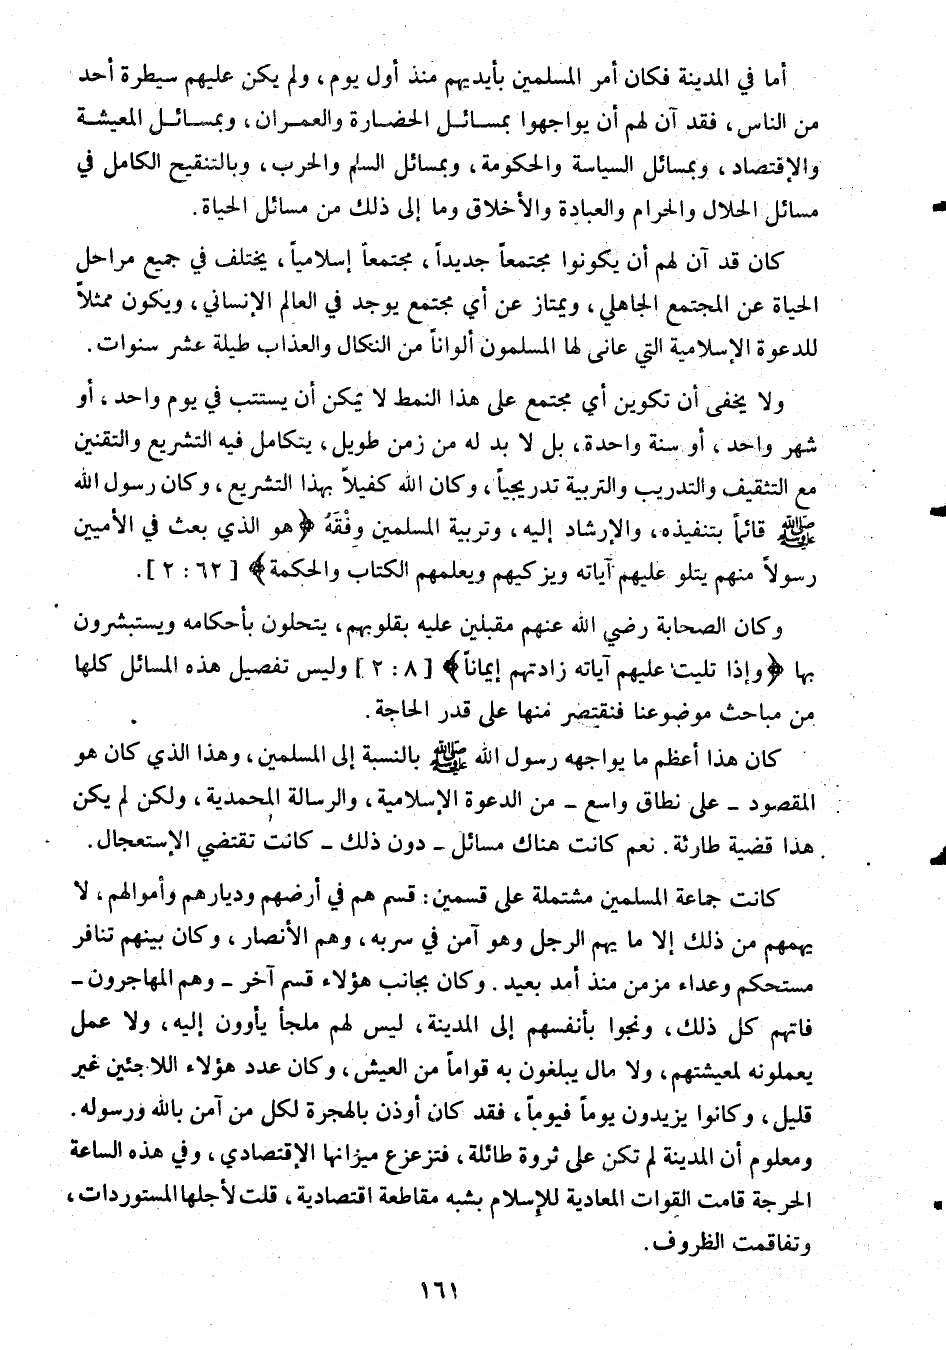 أما في المدينة فكان أمر المسلمين بأيديهم منذ أول يوم، ولم يكن عليهم سيطرة أحد
من الناس، فقد آن لهم أن يواجهوا بمسائل الحضارة والعمران، وبمسائل المعيشة
والإقتصاد، وبمسائل السياسة والحكومة، وبمسائل السلم والحرب، وبالتنقيح الكامل في
مسائل الحلال والحرام والعبادة والأخلاق وما إلى ذلك من مسائل الحياة.
كان قد آن لهم أن يكونوا مجتمعاً جديداً، مجتمعاً إسلامياً، يختلف في جميع مراحل
الحياة عن المجتمع الجاهلي، ويمتاز عن أي مجتمع يوجد في العالم الإنساني، ويكون ممثلاً
للدعوة الإسلامية التي عانى لها المسلمون ألواناً من النكال والعذاب طيلة عشر سنوات.
ولا يخفى أن تكوين أي مجتمع على هذا النمط لا يمكن أن يستتب في يوم واحد، أو
شهر واحد، أو سنة واحدة، بل لا بد له من زمن طويل، يتكامل فيه التشريع والتقنين
مع التثقيف والتدريب والتربية تدريجياً، وكان الله كفيلاً بهذا التشريع، وكان رسول الله
ﷺ قائماً بتنفيذه، والإرشاد إليه، وتربية المسلمين وِفْقَهُ ﴿هو الذي بعث في الأميين
رسولاً منهم يتلو عليهم آياته ويزكيهم ويعلمهم الكتاب والحكمة﴾ [٦٢ : ٢].
وكان الصحابة رضي الله عنهم مقبلين عليه بقلوبهم، يتحلون بأحكامه ويستبشرون
بها ﴿وإذا تليت عليهم آياته زادتهم إيماناً﴾ [٨ : ٢] وليس تفصيل هذه المسائل كلها
من مباحث موضوعنا فنقتصر منها على قدر الحاجة.
كان هذا أعظم ما يواجهه رسول الله ﷺ بالنسبة إلى المسلمين، وهذا الذي كان هو
المقصود – على نطاق واسع – من الدعوة الإسلامية، والرسالة المحمدية، ولكن لم يكن
هذا قضية طارئة. نعم كانت هناك مسائل – دون ذلك – كانت تقتضي الإستعجال.
كانت جماعة المسلمين مشتملة على قسمين: قسم هم في أرضهم وديارهم وأموالهم، لا
يهمهم من ذلك إلا ما يهم الرجل وهو آمن في سربه، وهم الأنصار، وكان بينهم تنافر
مستحكم وعداء مزمن منذ أمد بعيد. وكان بجانب هؤلاء قسم آخر – وهم المهاجرون –
فاتهم كل ذلك، ونجوا بأنفسهم إلى المدينة، ليس لهم ملجأ يأوون إليه، ولا عمل
يعملونه لمعيشتهم، ولا مال يبلغون به قواماً من العيش، وكان عدد هؤلاء اللاجئين غير
قليل، وكانوا يزيدون يوماً فيوماً، فقد كان أوذن بالهجرة لكل من آمن بالله ورسوله.
ومعلوم أن المدينة لم تكن على ثروة طائلة، فتزعزع ميزانها الإقتصادي، وفي هذه الساعة
الحرجة قامت القوات المعادية للإسلام بشبه مقاطعة اقتصادية، قلت لأجلها المستوردات،
وتفاقمت الظروف.
١٦١